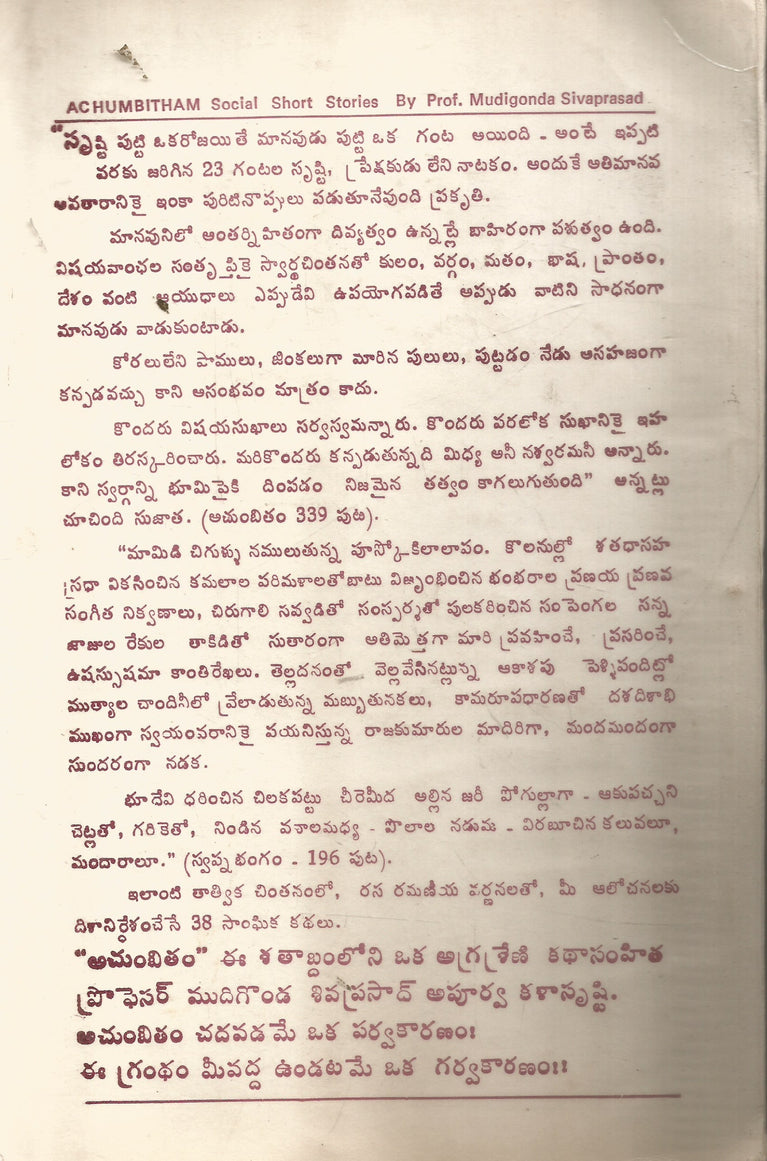 ACHUMBITHAM Social Short Stories By Prof. Mudigonda Sivaprasad
“సృష్టి పుట్టి ఒకరోజయితే మానవుడు పుట్టి ఒక గంట అయింది - అంటే ఇప్పటి
వరకు జరిగిన 23 గంటల సృష్టి, ప్రేక్షకుడు లేని నాటకం. అందుకే అతిమానవ
అవతారానికై ఇంకా పురిటినొప్పులు పడుతూనేవుంది ప్రకృతి.
మానవునిలో అంతర్నిహితంగా దివ్యత్వం ఉన్నట్లే బాహిరంగా పశుత్వం ఉంది.
విషయవాంఛల సంతృప్తికై స్వార్థచింతనతో కులం, వర్గం, మతం, భాష, ప్రాంతం,
దేశం వంటి ఆయుధాలు ఎప్పుడేవి ఉపయోగపడితే అప్పుడు వాటిని సాధనంగా
మానవుడు వాడుకుంటాడు.
కోరలులేని పాములు, జింకలుగా మారిన పులులు, పుట్టడం నేడు అసహజంగా
కన్పడవచ్చు కాని అసంభవం మాత్రం కాదు.
కొందరు విషయసుఖాలు సర్వస్వమన్నారు. కొందరు పరలోక సుఖానికై ఇహ
లోకం తిరస్కరించారు. మరికొందరు కన్పడుతున్నది మిధ్య అనీ నశ్వరమనీ అన్నారు.
కాని స్వర్గాన్ని భూమిపైకి దింపడం నిజమైన తత్వం కాగలుగుతుంది” అన్నట్లు
చూచింది సుజాత. (అచుంబితం 339 పుట).
“మామిడి చిగుళ్ళు నములుతున్న పూస్కోకిలాలాపం. కొలనుల్లో శతధాసహ
స్రధా వికసించిన కమలాల పరిమళాలతోబాటు విజృంభించిన భంభరాల ప్రణయ ప్రణవ
సంగీత నిక్వణాలు, చిరుగాలి సవ్వడితో సంస్పర్శతో పులకరించిన సంపెంగల సన్న
జాజుల రేకుల తాకిడితో సుతారంగా అతిమెత్తగా మారి ప్రవహించే, ప్రసరించే,
ఉషస్సుషమా కాంతిరేఖలు. తెల్లదనంతో వెల్లవేసినట్లున్న ఆకాశపు పెళ్ళిపందిట్లో
ముత్యాల చాందినీలో వ్రేలాడుతున్న మబ్బుతునకలు, కామరూపధారణతో దశదిశాభి
ముఖంగా స్వయంవరానికై పయనిస్తున్న రాజకుమారుల మాదిరిగా, మందమందంగా
సుందరంగా నడక.
భూదేవి ధరించిన చిలకపట్టు చీరెమీద అల్లిన జరీ పోగుల్లాగా - ఆకుపచ్చని
చెట్లతో, గరికెతో, నిండిన వనాలమధ్య - పొలాల నడుమ - విరబూచిన కలువలూ,
మందారాలూ.” (స్వప్నభంగం - 196 పుట).
ఇలాంటి తాత్విక చింతనంలో, రస రమణీయ వర్ణనలతో, మీ ఆలోచనలకు
దిశానిర్దేశంచేసే 38 సాంఘిక కథలు.
“అచుంబితం” ఈ శతాబ్దంలోని ఒక అగ్రశ్రేణి కథాసంహిత
ప్రొఫెసర్ ముదిగొండ శివప్రసాద్ అపూర్వ కళాసృష్టి.
అచుంబితం చదవడమే ఒక పర్వకారణం!
ఈ గ్రంథం మీవద్ద ఉండటమే ఒక గర్వకారణం!!